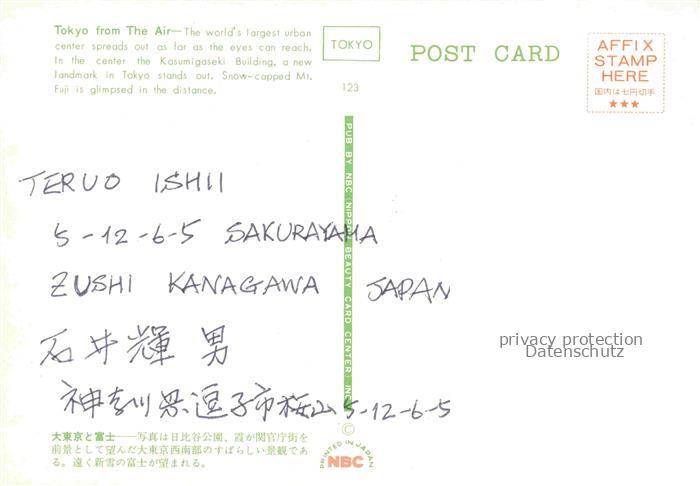 Tokyo from The Air—The world's largest urban
center spreads out as far as the eyes can reach.
In the center the Kasumigaseki Building, a new
landmark in Tokyo stands out. Snow-capped Mt.
Fuji is glimpsed in the distance.
TOKYO
123
POST CARD
AFFIX
STAMP
HERE
国内は七円切手
★★★
PUB BY NBC NIPPON BEAUTY CARD CENTER:
TERUO ISHII
5-12-6-5 SAKURAYAMA
ZUSHI KANAGAWA JAPAN
石井輝男
神奈川県逗子市桜山5-12-6-5
privacy protection
Datenschutz
大東京と富士——写真は日比谷公園、霞が関官庁街を
前景として望んだ大東京西南部のすばらしい景観であ
る。遠く新雪の富士が望まれる。
©
PRINTED IN JAPAN
NBC